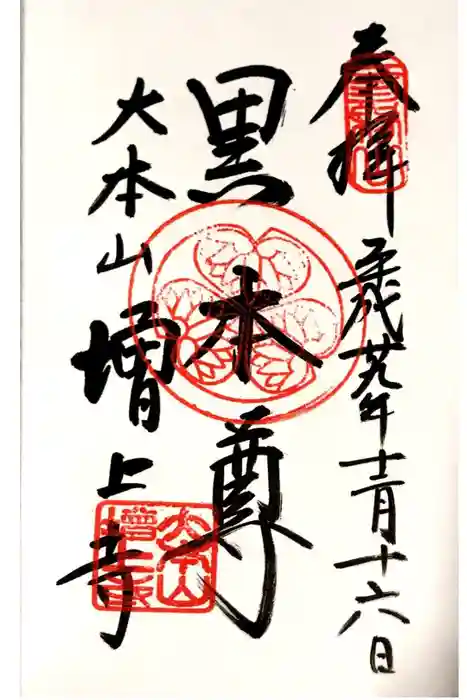 奉拝
平成廿九年十二月十六日
黒本尊
大本山増上寺
大本山
増上寺